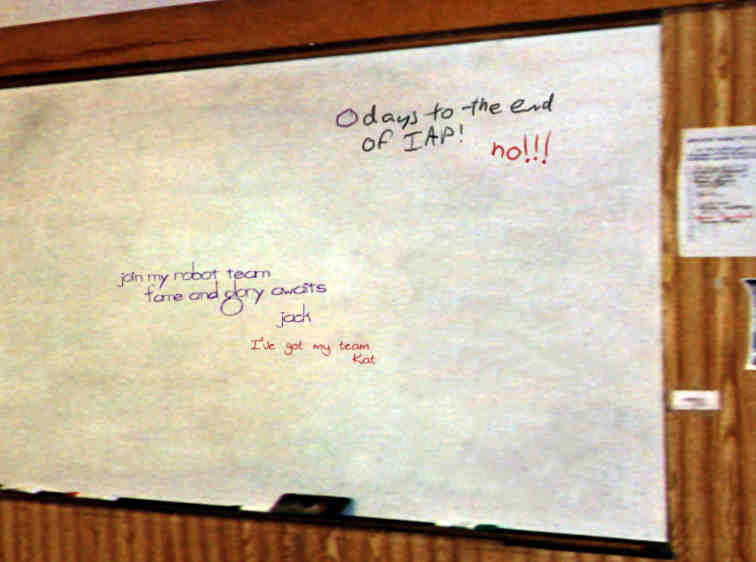 0 days to the end
of IAP!
no!!!
join my robot team
fame and glory awaits
jack
I've got my team
Kat